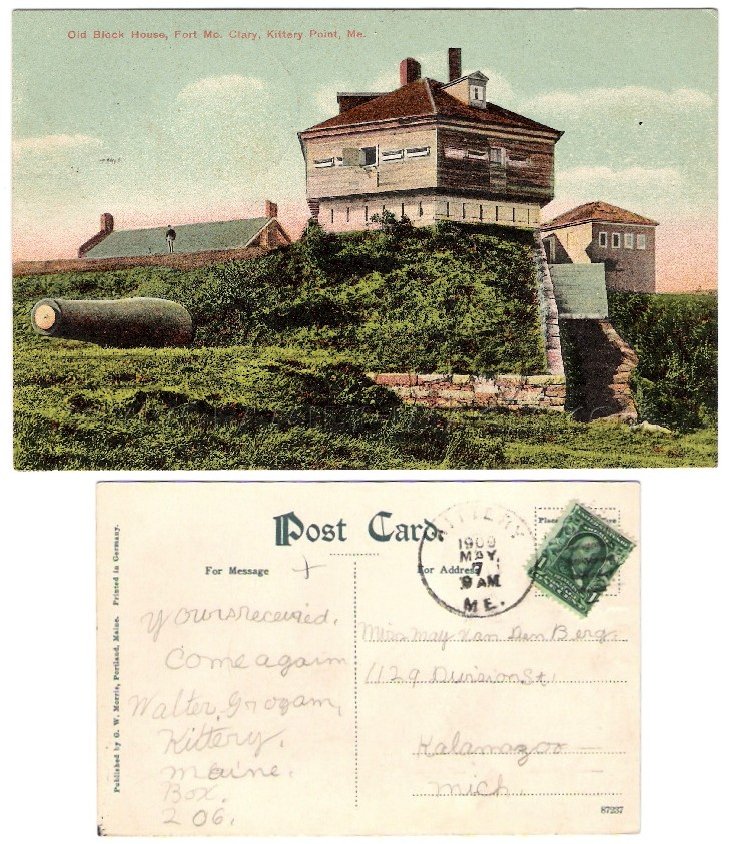 Old Block House, Fort Mc. Clary, Kittery Point, Me.
Post Card.
Place
For Message
For Address
KITTERY
1909
MAY
7
9 AM
ME.
Yours received.
Come again
Walter Grogam,
Kittery,
Maine.
Box.
206.
Miss May Van Den Berg.
1129 Division St.
Kalamazoo
Mich.
Published by G. W. Morris, Portland, Maine. Printed in Germany.
87237